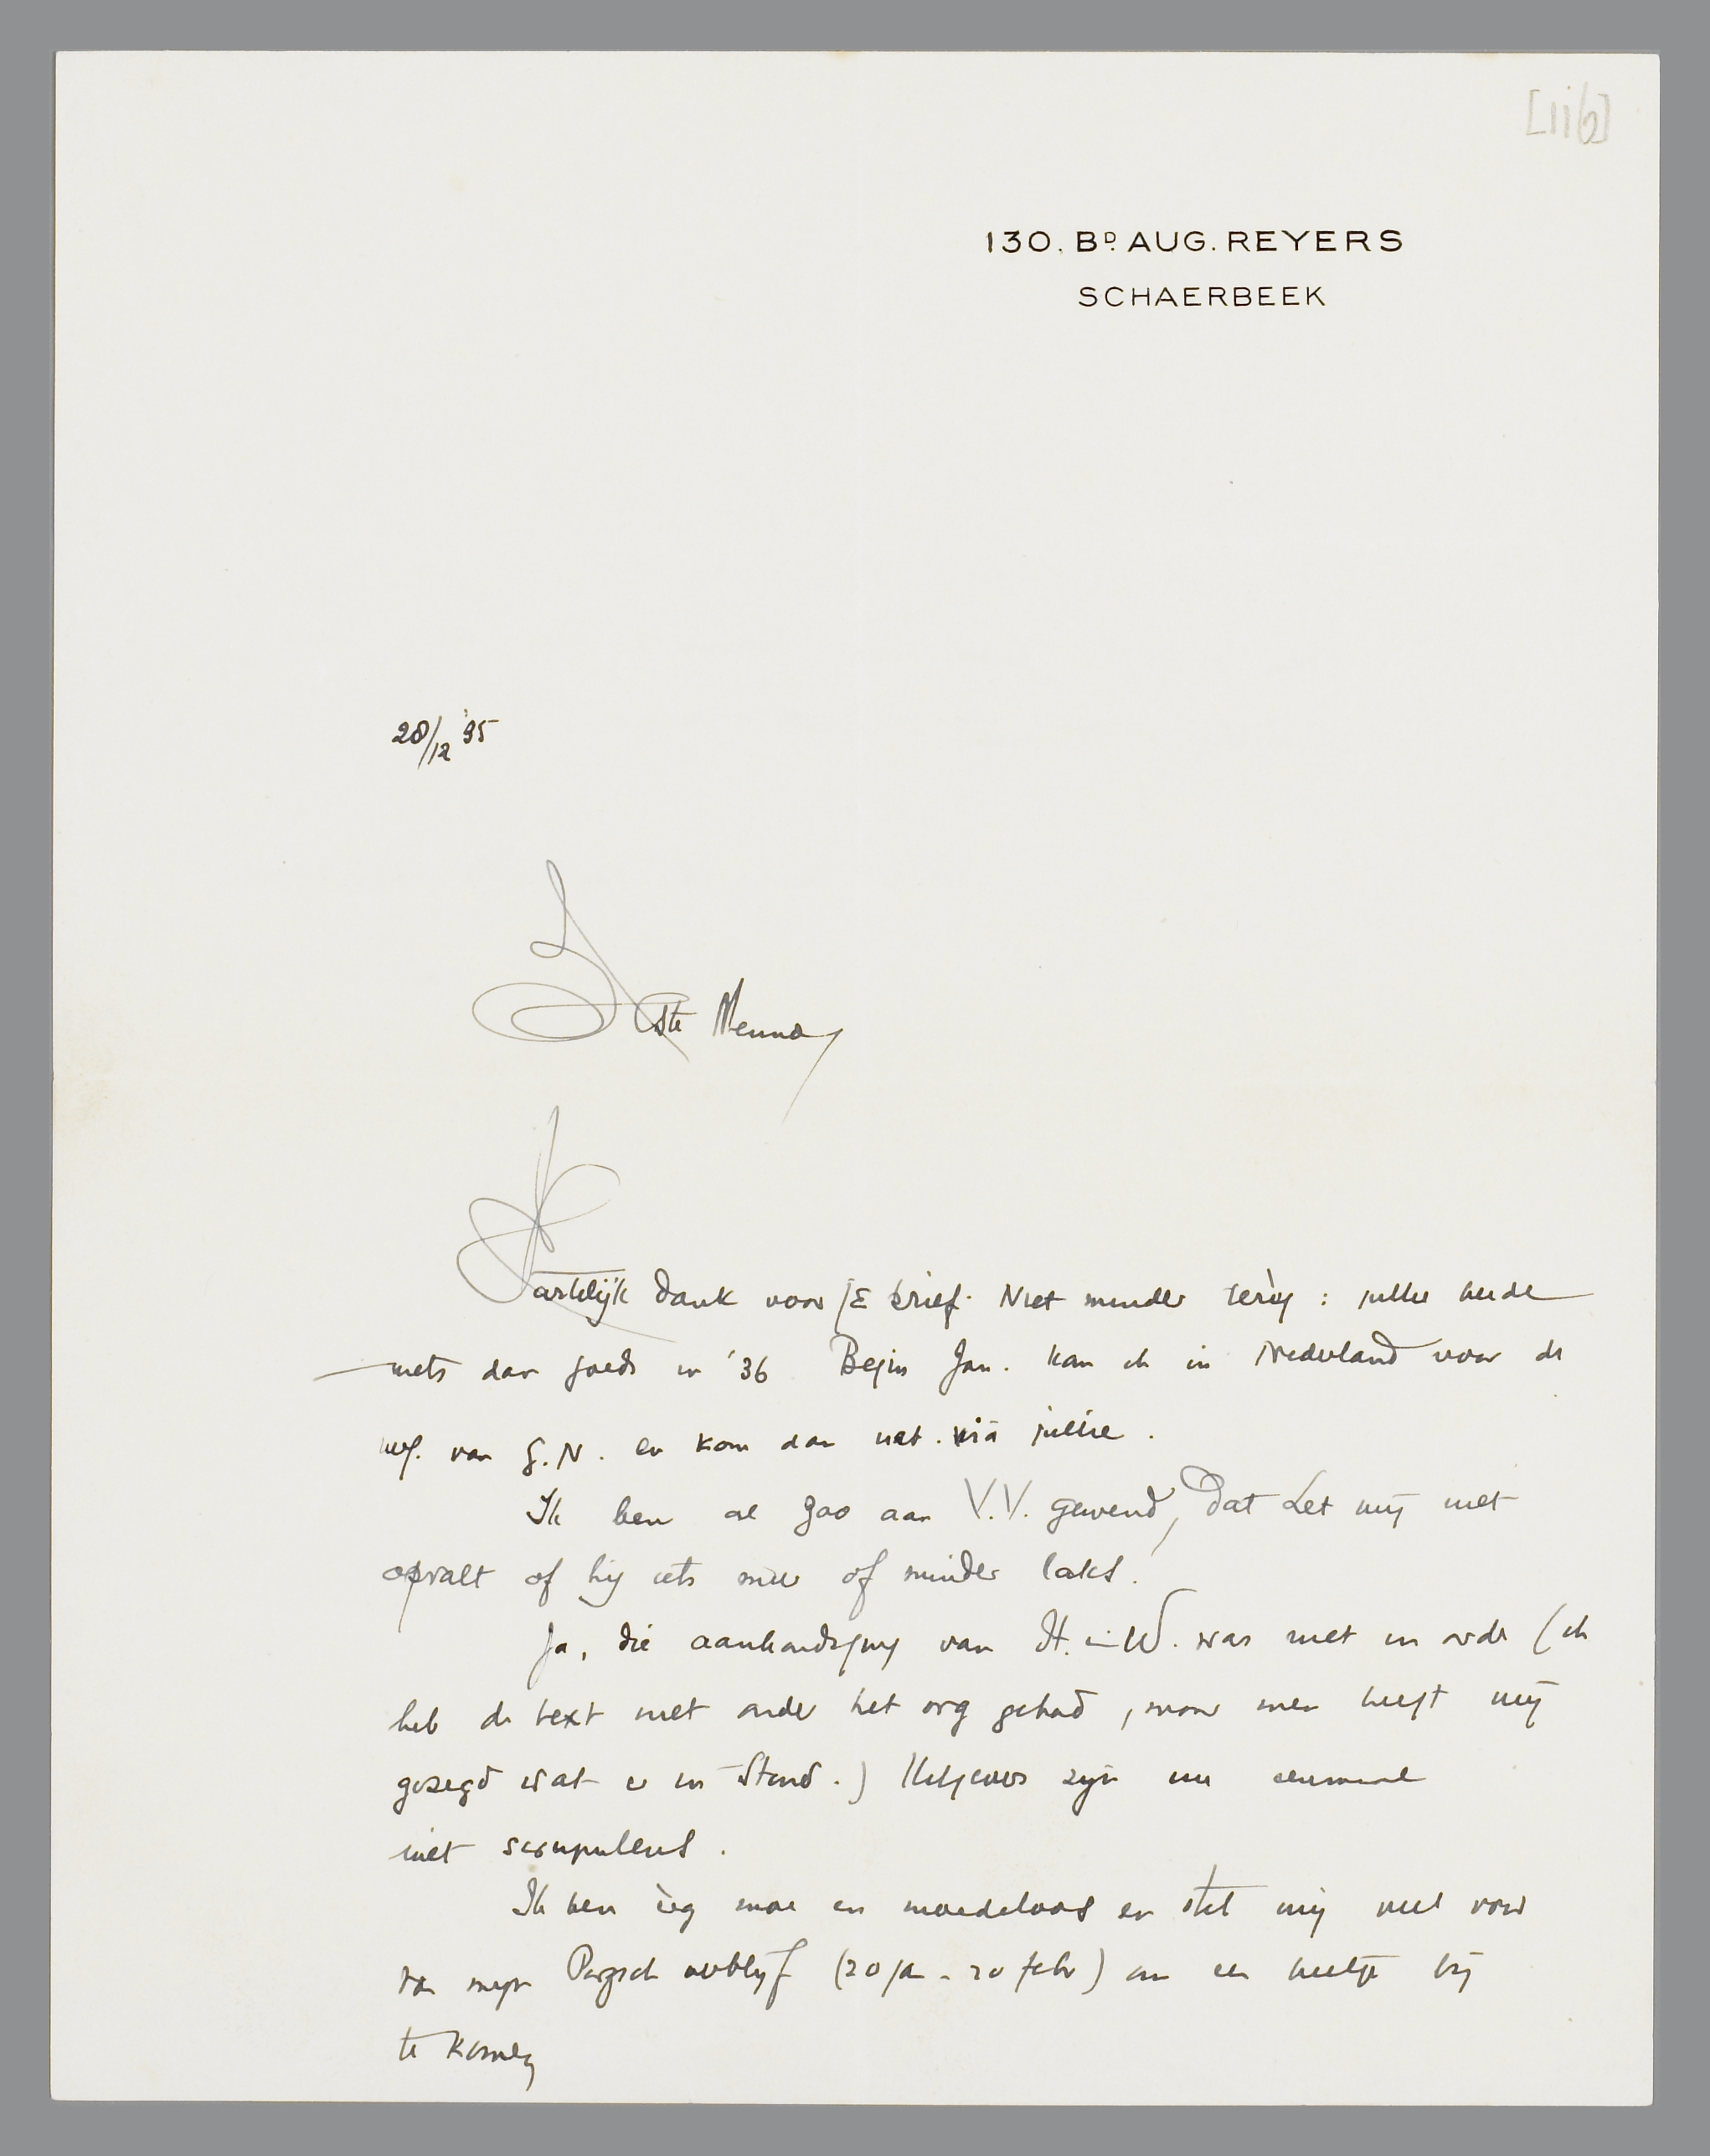 [116]
130. BD. AUG. REYERS
SCHAERBEEK
28/12 '35
Beste Menno,
Hartelijk dank voor je brief. Niet minder terug: jullie beide
niets dan goeds in '36. Begin Jan. kan ik in Nederland voor de
verg. van G.N. en kom dan nat. viâ jullie.
Ik ben al zoo aan V.V. gewend, dat het mij niet
opvalt of hij iets meer of minder lakt.
Ja, die aankondiging van H. en W. was niet in orde (ik
heb de text niet onder het oog gehad, maar men heeft mij
gezegd wat er in stond.) Uitgevers zijn nu eenmaal
niet scrupuleus.
Ik ben èrg moe en moedeloos en stel mij veel voor
van mijn Parijsch verblijf (20 jan - 20 febr) om een beetje bij
te komen